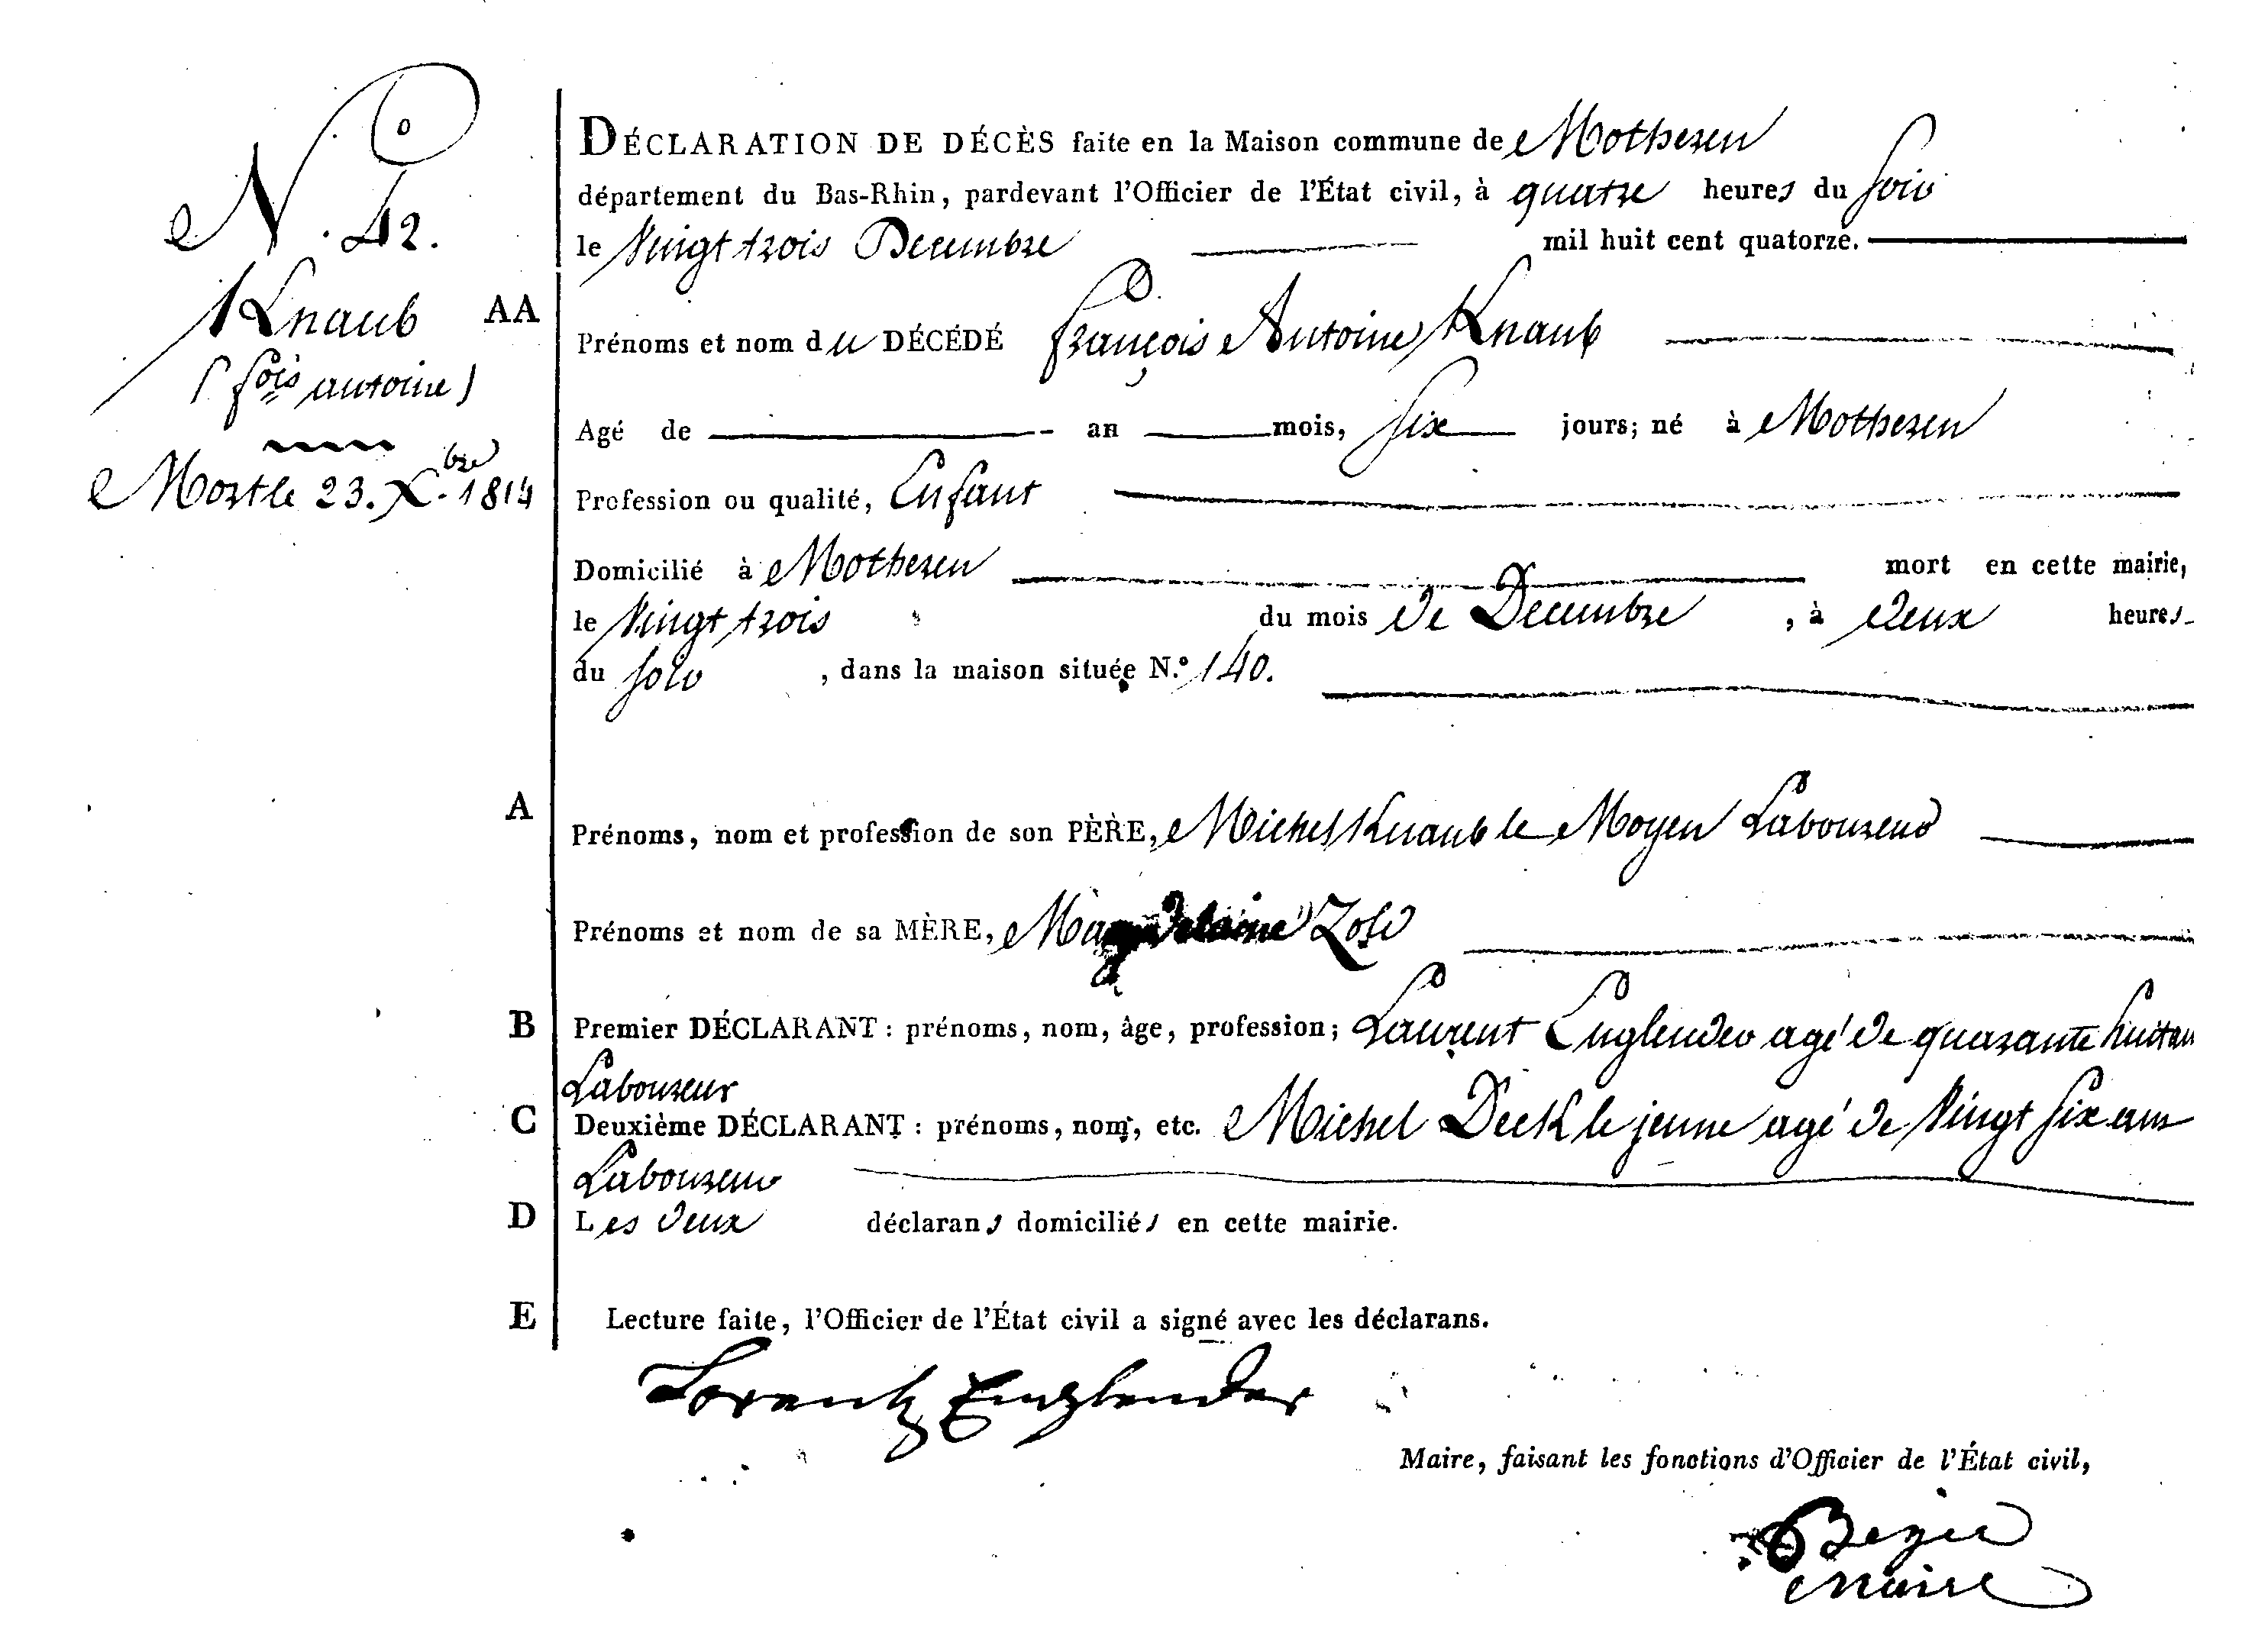 N.º 42.
Knaub
(fois antoine)
Mort le 23. Xbre 1814
DÉCLARATION DE DÉCÈS faite en la Maison commune de Motheren
département du Bas-Rhin, pardevant l'Officier de l'État civil, à quatre heures du soir
le Vingt trois Decembre mil huit cent quatorze.
AA Prénoms et nom du DÉCÉDÉ françois Antoine Knaub
Agé de an mois, six jours; né à Motheren
Profession ou qualité, Enfant
Domicilié à Motheren mort en cette mairie,
le Vingt trois du mois de Decembre, à deux heures
du soir, dans la maison située N.º 140.
A Prénoms, nom et profession de son PÈRE, Michel Knaub le Moyen Laboureur
Prénoms et nom de sa MÈRE, Magdelaine
B Premier DÉCLARANT: prénoms, nom, âge, profession; Laurent Englender agé de quarante huit an
Laboureur
C Deuxième DÉCLARANT: prénoms, nom, etc. Michel Deck le jeune agé de Vingt six ans
Laboureur
D Les deux déclarans domiciliés en cette mairie.
E Lecture faite, l'Officier de l'État civil a signé avec les déclarans.
Lorentz Englender
Maire, faisant les fonctions d'Officier de l'État civil,
maire